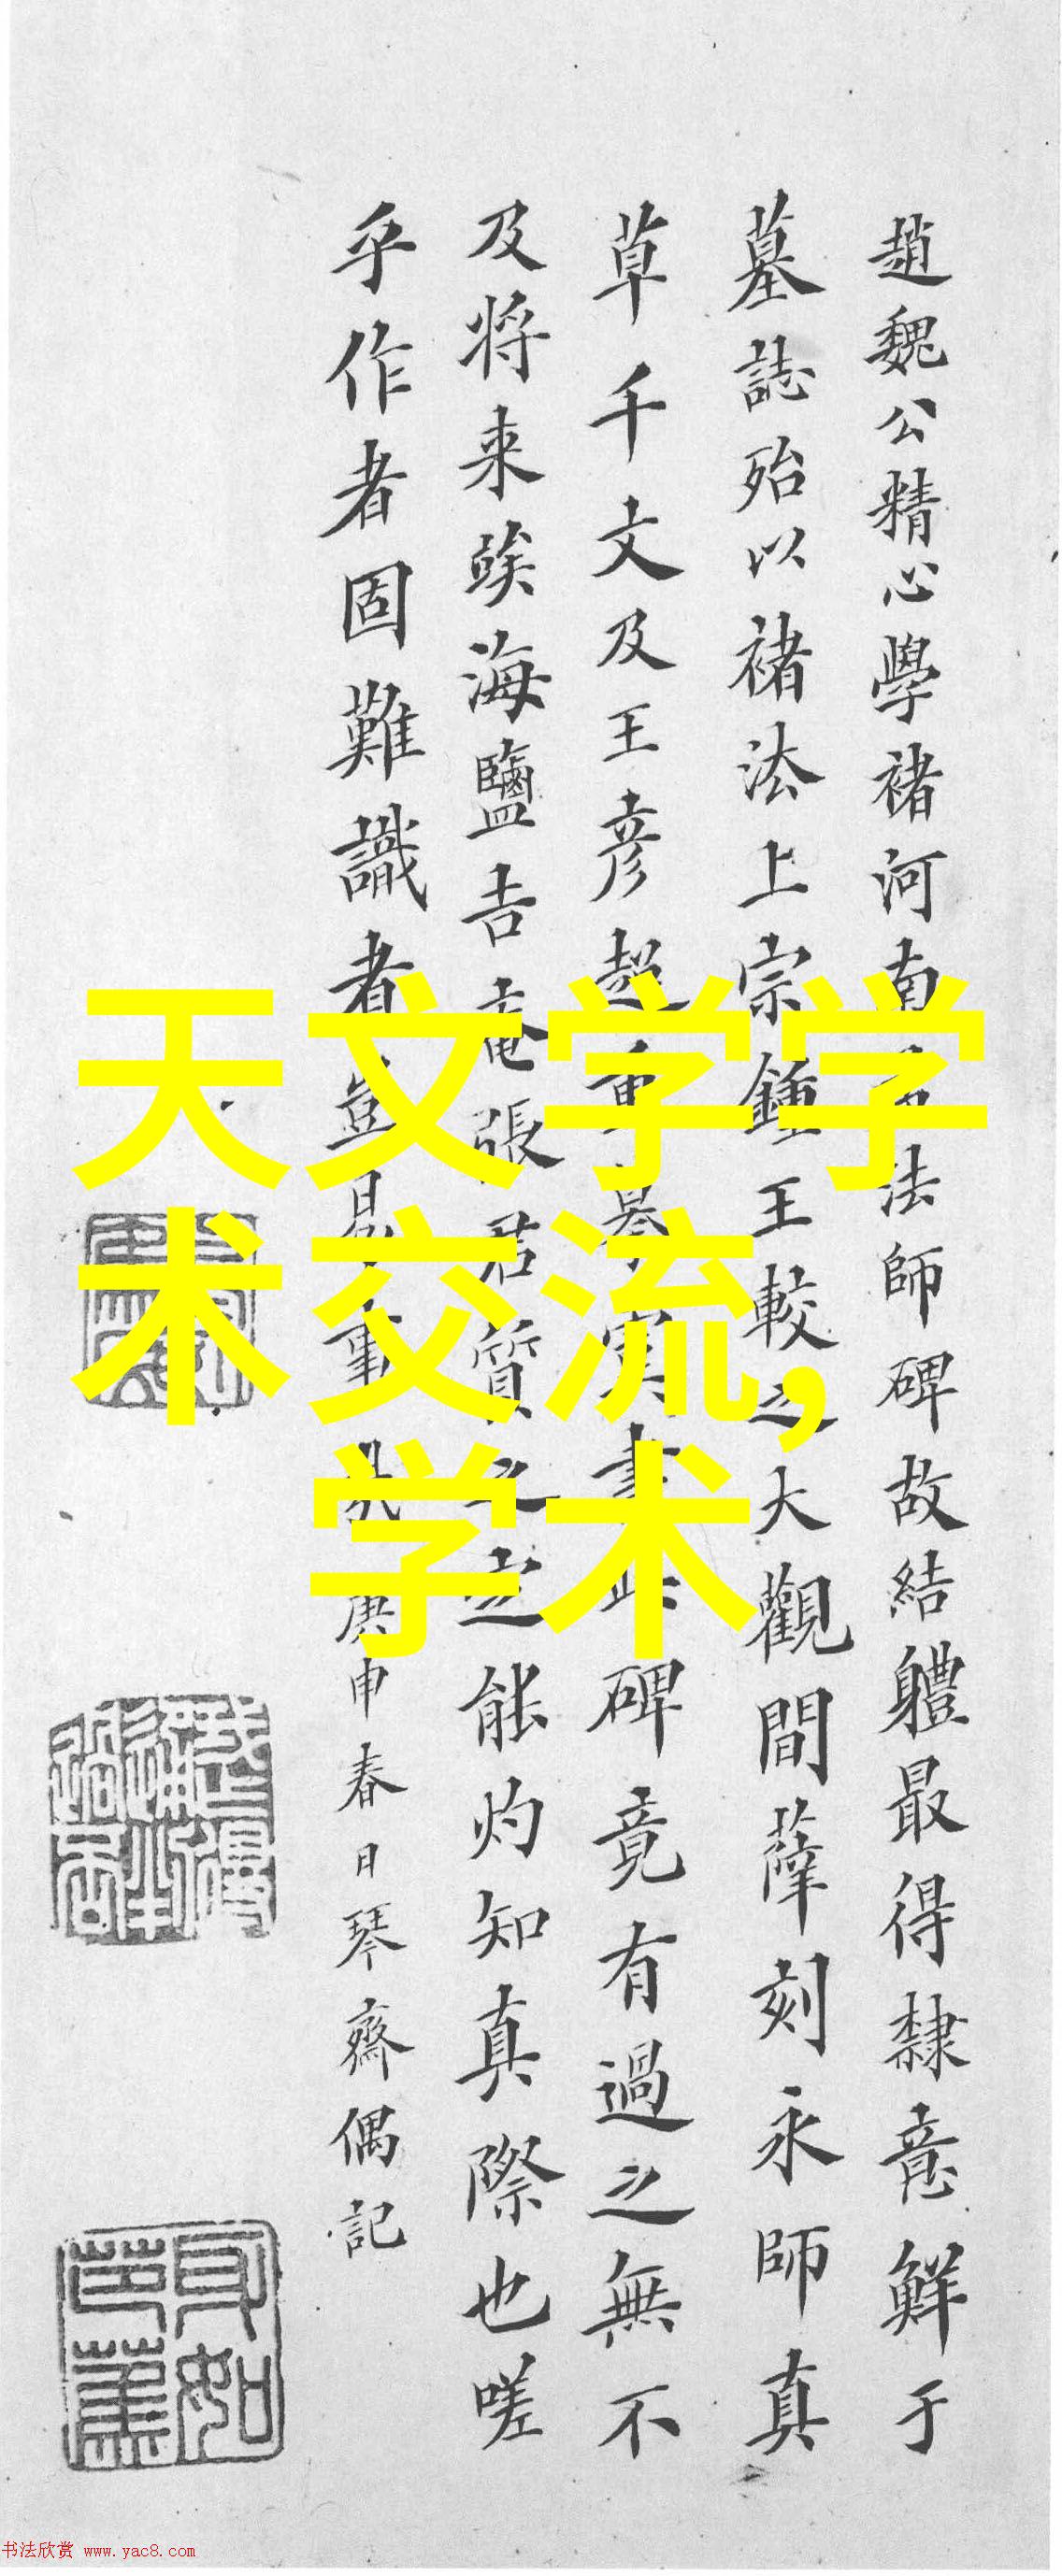 趙魏公精心學褚河南法師碑故結軆最得隸意鮮于
墓誌殆以褚法上宗鍾王較之大觀間薛刻永師真
草千文及王彦超重碑竟有過之無不
及将来󠄁海鹽吉菴張君質之定能灼知真際也嗟
乎作者固難識者豈易庚申春日琴齋偶記
天文学学
术交流，
学术
书法欣赏 www.yac8.com